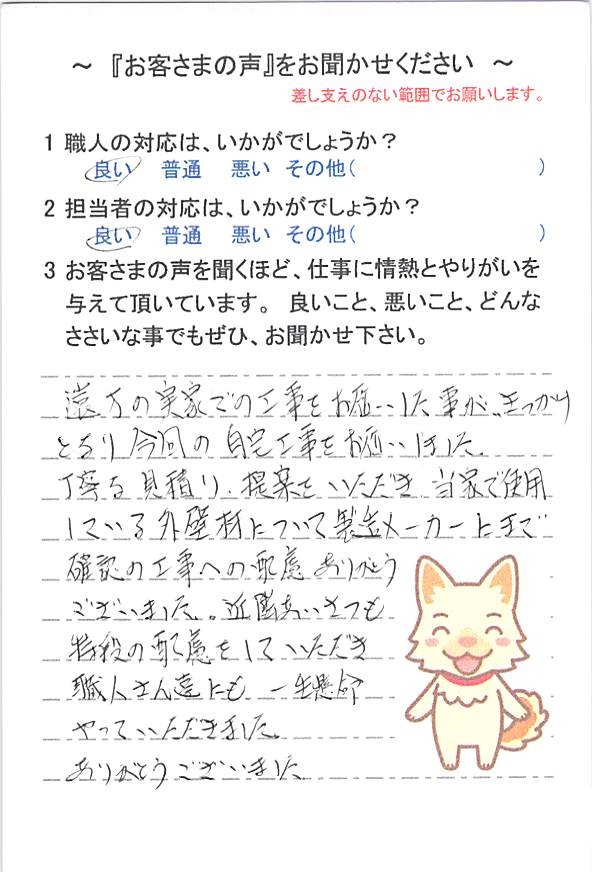 ～ 『お客さまの声』をお聞かせください ～
差し支えのない範囲でお願いします。
1 職人の対応は、いかがでしょうか？
良い 普通 悪い その他( )
2 担当者の対応は、いかがでしょうか？
良い 普通 悪い その他( )
3 お客さまの声を聞くほど、仕事に情熱とやりがいを
与えて頂いています。 良いこと、悪いこと、どんな
ささいな事でもぜひ、お聞かせ下さい。
遠方の実家での工事をお願いした事が、きっかけ
となり今回の自宅工事をお願いしました。
丁寧な見積り、提案をいただき、当家で使用
している外壁材について製造メーカーにまで
確認の工事への配慮ありがとう
ございました。近隣あいさつも
特段の配慮をしていただき
職人さん達にも一生懸命
やっていただきました。
ありがとうございました